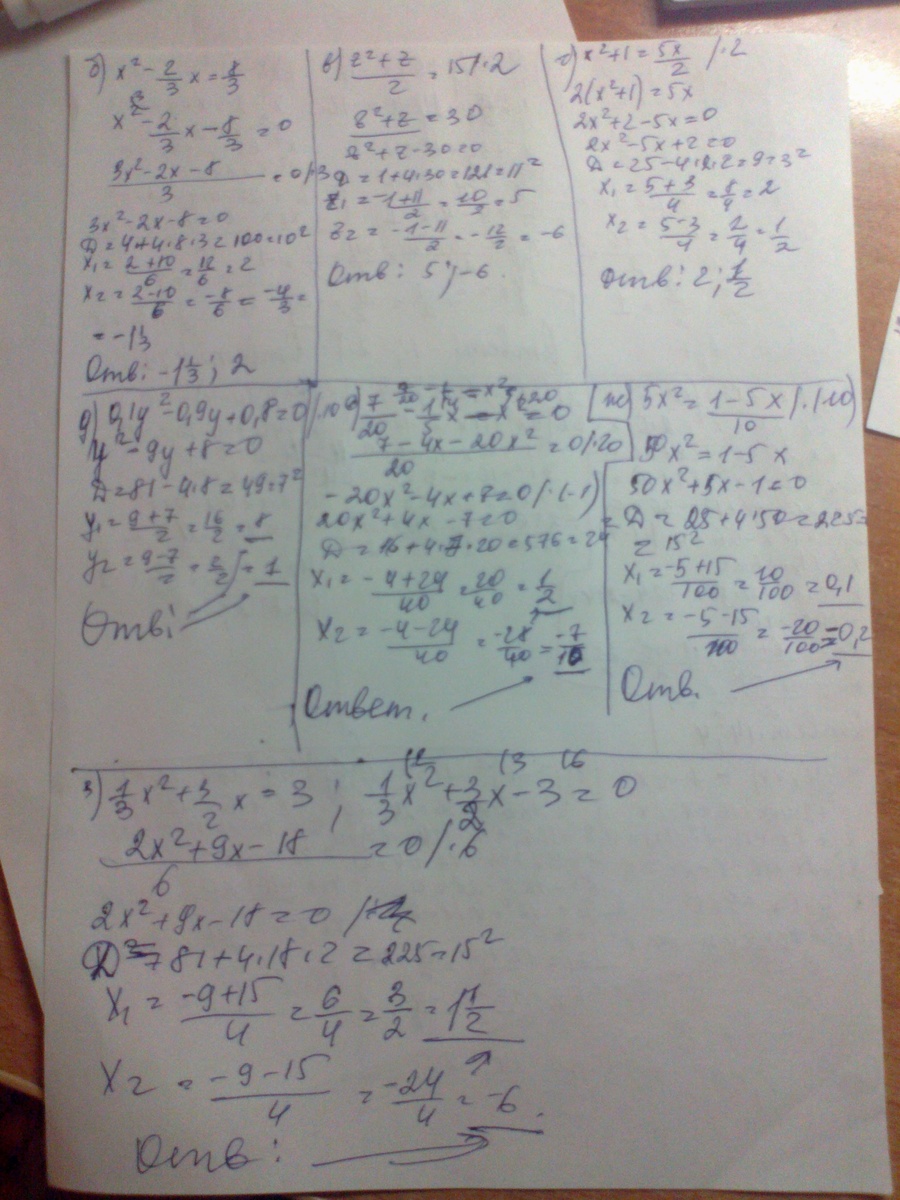 б) x² - 2/3 x = 8/3
x² - 2/3 x - 8/3 = 0
3x² - 2x - 8 / 3 = 0 /·3
3x² - 2x - 8 = 0
D = 4 + 4·8·3 = 100 = 10²
x₁ = 2+10 / 6 = 12/6 = 2
x₂ = 2-10 / 6 = -8/6 = -4/3 =
= -1 1/3
Отв: -1 1/3 ; 2
в) z² + z / 2 = 15 /·2
z² + z = 30
z² + z - 30 = 0
D = 1 + 4·30 = 121 = 11²
z₁ = -1+11 / 2 = 10/2 = 5
z₂ = -1-11 / 2 = -12/2 = -6
Отв: 5 ; -6.
г) x² + 1 = 5x/2 /·2
2(x² + 1) = 5x
2x² + 2 - 5x = 0
2x² - 5x + 2 = 0
D = 25 - 4·2·2 = 9 = 3²
x₁ = 5+3 / 4 = 8/4 = 2
x₂ = 5-3 / 4 = 2/4 = 1/2
Отв: 2 ; 1/2
д) 0,1y² - 0,9y + 0,8 = 0 /·10
y² - 9y + 8 = 0
D = 81 - 4·8 = 49 = 7²
y₁ = 9+7 / 2 = 16/2 = 8
y₂ = 9-7 / 2 = 2/2 = 1
Отв:
е) 7/20 - 1/5 x - x² = 0
7 - 4x - 20x² / 20 = 0 /·20
-20x² - 4x + 7 = 0 /·(-1)
20x² + 4x - 7 = 0
D = 16 + 4·7·20 = 576 = 24²
x₁ = -4+24 / 40 = 20/40 = 1/2
x₂ = -4-24 / 40 = -28/40 = -7/10
Ответ.
ж) 5x² = 1-5x / 10 /·(10)
50x² = 1 - 5x
50x² + 5x - 1 = 0
D = 25 + 4·50 = 225 =
= 15²
x₁ = -5+15 / 100 = 10/100 = 0,1
x₂ = -5-15 / 100 = -20/100 = -0,2
Отв.
з) 1/3 x² + 3/2 x = 3 ; 1/3 x² + 3/2 x - 3 = 0
2x² + 9x - 18 / 6 = 0 /·6
2x² + 9x - 18 = 0
D = 81 + 4·18·2 = 225 = 15²
x₁ = -9+15 / 4 = 6/4 = 3/2 = 1 1/2
x₂ = -9-15 / 4 = -24/4 = -6.
Отв: